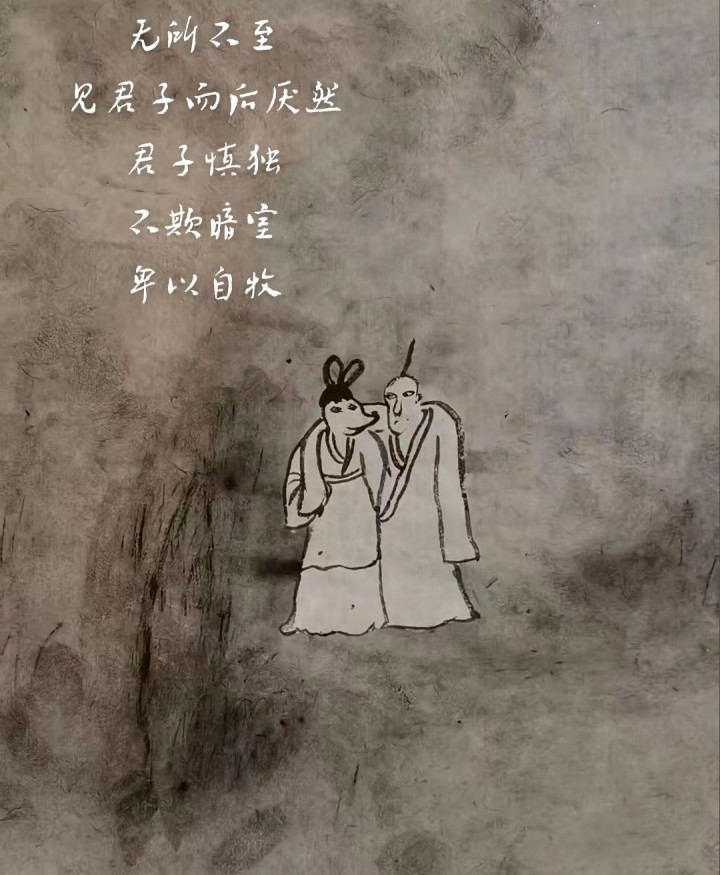 无所不至
见君子而后厌然
君子慎独
不欺暗室
卑以自牧